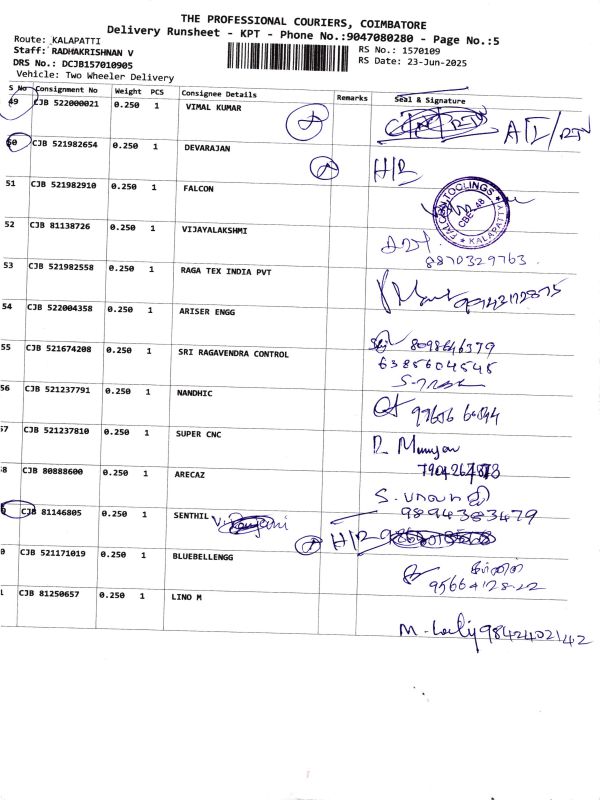 THE PROFESSIONAL COURIERS, COIMBATORE
Delivery Runsheet - KPT - Phone No.:9047080280 - Page No.:5
Route: KALAPATTI
RS No.: 1570109
Staff: RADHAKRISHNAN V
RS Date: 23-Jun-2025
DRS No.: DCJB157010905
Vehicle: Two Wheeler Delivery
S No Consignment No Weight PCS Consignee Details Remarks Seal & Signature
49 CJB 522000021 0.250 1 VIMAL KUMAR
50 CJB 521982654 0.250 1 DEVARAJAN
51 CJB 521982910 0.250 1 FALCON
FALCON TOOLINGS
CBE-48
KALAPATTI
52 CJB 81138726 0.250 1 VIJAYALAKSHMI
8870329763
53 CJB 521982558 0.250 1 RAGA TEX INDIA PVT
54 CJB 522004358 0.250 1 ARISER ENGG
8098646379
55 CJB 521674208 0.250 1 SRI RAGAVENDRA CONTROL
6385604545
56 CJB 521237791 0.250 1 NANDHIC
57 CJB 521237810 0.250 1 SUPER CNC
8 CJB 80888600 0.250 1 ARECAZ
S. பாலாஜி
9894383479
CJB 81146805 0.250 1 SENTHIL
0 CJB 521171019 0.250 1 BLUEBELLENGG
1 CJB 81250657 0.250 1 LINO M
9842402142